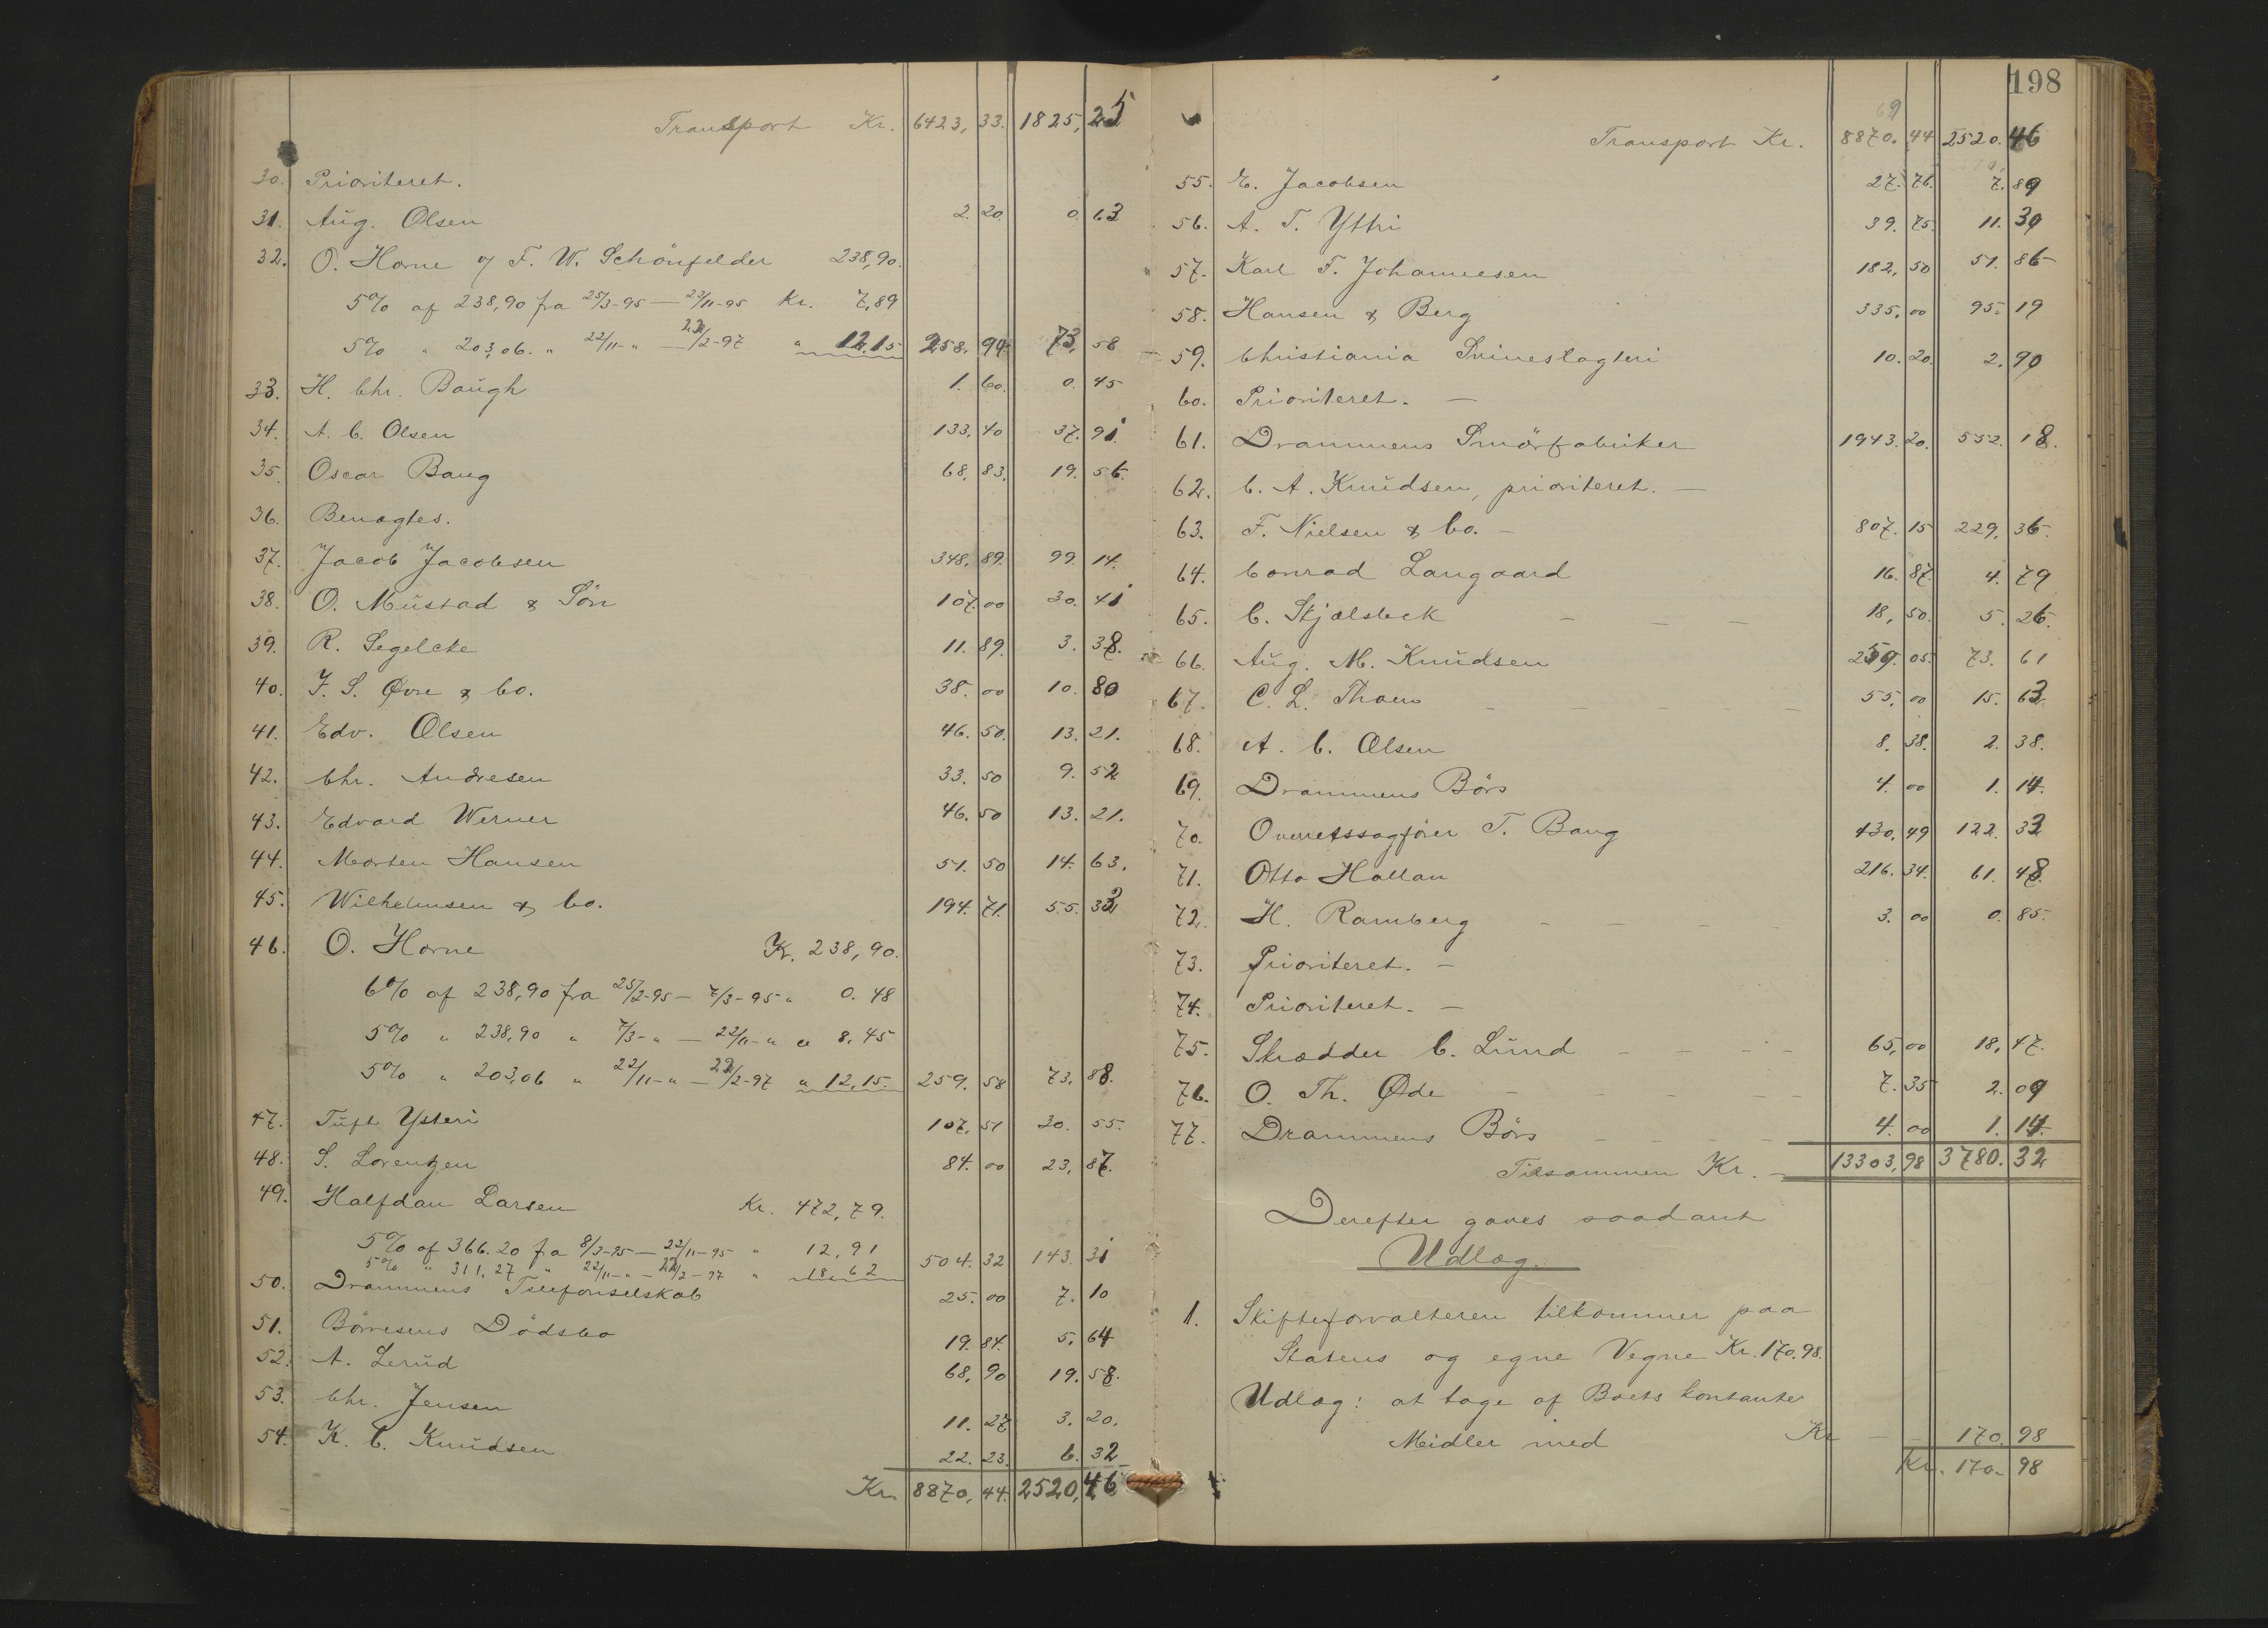 Transport Kr. 6423, 33. 1825, 25
30. Prioriteret.
31. Aug. Olsen 2. 20. 0. 63
32. O. Horne / F. W. Schönfelder 238,90.
5% af 238,90 fra 25/3-95 — 22/11-95 Kr. 7,89
5% " 203,06. " 22/11-" — 22/2-97 " 12,15 258. 94. 73, 58
33. H. Chr. Baugh 1. 60. 0. 45
34. A. C. Olsen 133, 40 37. 91.
35. Oscar Baug 68, 83. 19. 56.
36. Benægtes.
37. Jacob Jacobsen 348, 89. 99. 14.
38. O. Mustad & Sön 107. 00 30. 41
39. R. Segelcke 11. 89. 3. 38.
40. J. S. Øvre & Co. 38. 00 10. 80
41. Edv. Olsen 46. 50. 13. 21.
42. Chr. Andresen 33. 50 9. 52
43. Edvard Werner 46. 50 13. 21.
44. Morten Hansen 51. 50 14. 63.
45. Wilhelmsen & Co. 194. 71. 55. 33
46. O. Horne Kr. 238,90.
6% af 238,90 fra 25/2-95 — 7/3-95 " 0. 48
5% " 238,90 " 7/3-" — 22/11-" " 8,45
5% " 203,06 " 22/11-" — 22/2-97 " 12,15. 259. 58 73, 88.
47. Tuft Ysteri 107, 51 30. 55.
48. S. Lorentzen 84. 00 23, 87.
49. Halfdan Larsen Kr. 472,79.
5% af 366.20 fra 8/3-95 — 22/11-95 " 12,91
5% " 311,27 " 22/11-" — 22/2-97 " 18,62 504. 32 143. 31
50. Drammens Telefonselskab 25. 00 7. 10
51. Börresens Dödsbo 19. 84. 5. 64
52. A. Lerud 68, 90 19. 58.
53. Chr. Jensen 11. 27 3. 20.
54. K. C. Knudsen 22. 23. 6. 32
Kr. 8870, 44. 2520, 46
198
69
Transport Kr. 8870. 44 2520. 46
55. E. Jacobsen 27. 76. 7. 89
56. A. T. Yttri 39. 75. 11. 30
57. Karl F. Johannesen 182, 50 51. 86
58. Hansen & Berg 335, 00 95. 19
59. Christiania Svineslagteri 10. 20. 2. 90
60. Prioriteret. —
61. Drammens Smörfabriker 1943. 20. 552. 18.
62. C. A. Knudsen, prioriteret. —
63. F. Nielsen & Co. - 807. 15 229, 36.
64. Conrad Langaard 16. 87. 4. 79
65. C. Stjælsbek 18, 50. 5. 26.
66. Aug. M. Knudsen 259. 05. 73. 61
67. C. L. Thoen 55, 00 15. 63
68. A. C. Olsen 8. 38. 2. 38.
69. Drammens Börs 4. 00 1. 14.
70. Overretssagförer T. Baug 430, 49 122. 33
71. Otto Hallan 216. 34. 61. 48.
72. H. Ramberg 3. 00 0. 85.
73. Prioriteret. —
74. Prioriteret. —
75. Skrædder C. Lund 65, 00 18, 47.
76. O. Th. Øde 7. 35 2. 09
77. Drammens Börs 4. 00 1. 14.
Tilsammen Kr. 13303, 98 3780. 32
Derefter gaves saadant
Udlæg.
1. Skifteforvalteren tilkommer paa
Statens og egne Vegne Kr. 170.98.
Udlæg: at tage af Boets kontante
Midler med Kr — 170. 98
Kr. 170. 98